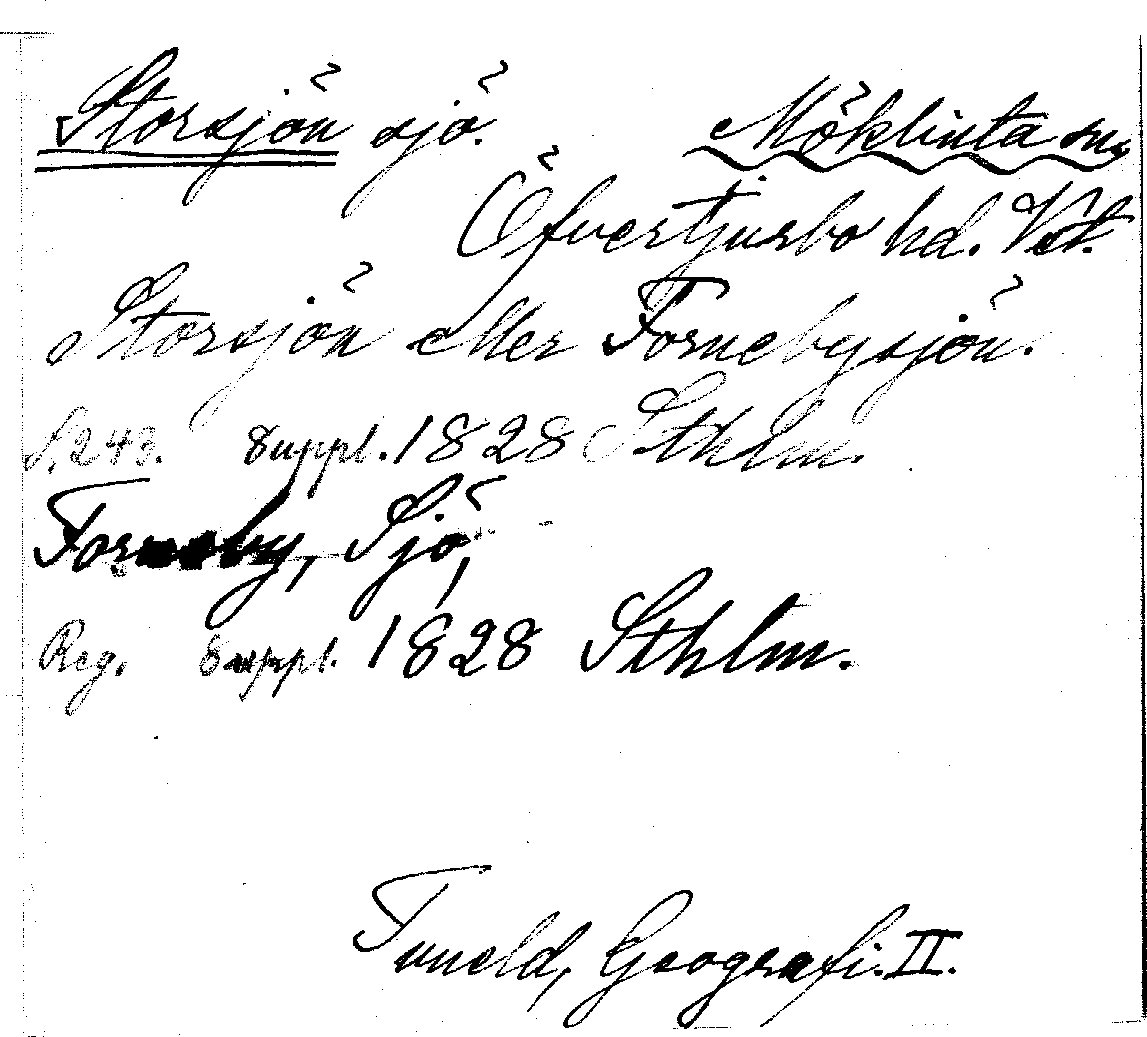 Storsjön sjö. Möklinta sn,
Öfvertjurbo hd. Vst.
Storsjön eller Fornebysjön.
S. 243. Suppl. 1828 Sthlm.
Forneby, Sjö,
Reg. Suppl. 1828 Sthlm.
Tuneld, Geografi. II.